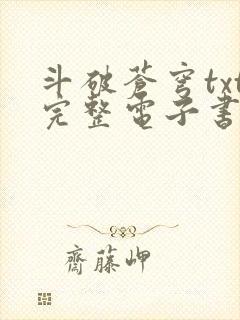 斗破蒼穹txt
完整電子書
齋藤岬